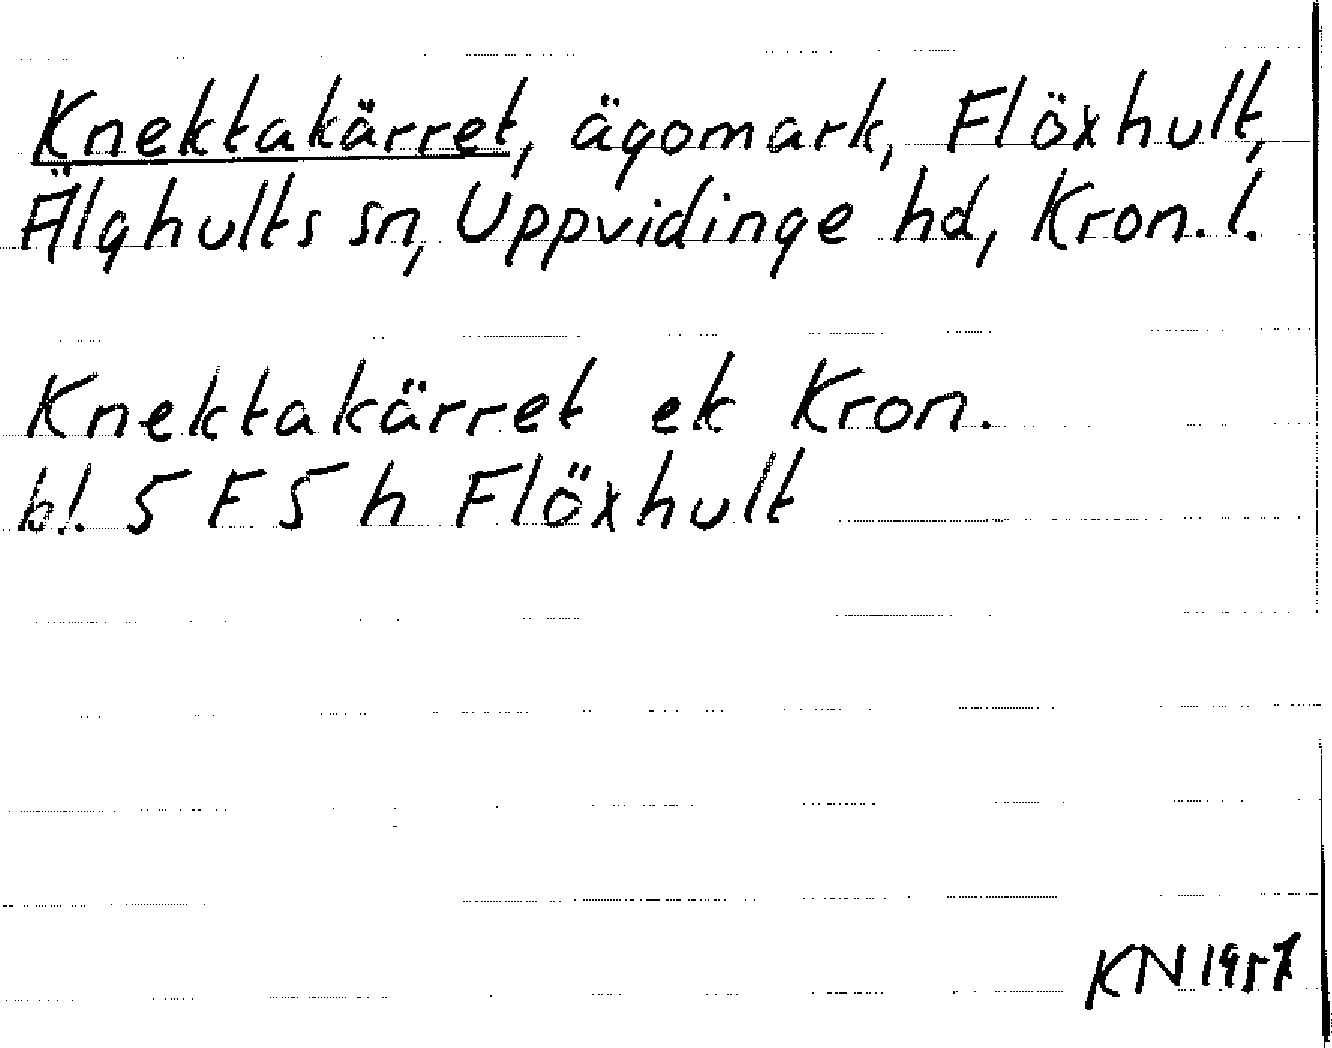 Knektakärret, ägomark, Flöxhult,
Älghults sn, Uppvidinge hd, Kron. l.
Knektakärret ek Kron.
bl. 5 F 5 h Flöxhult
KN 1957